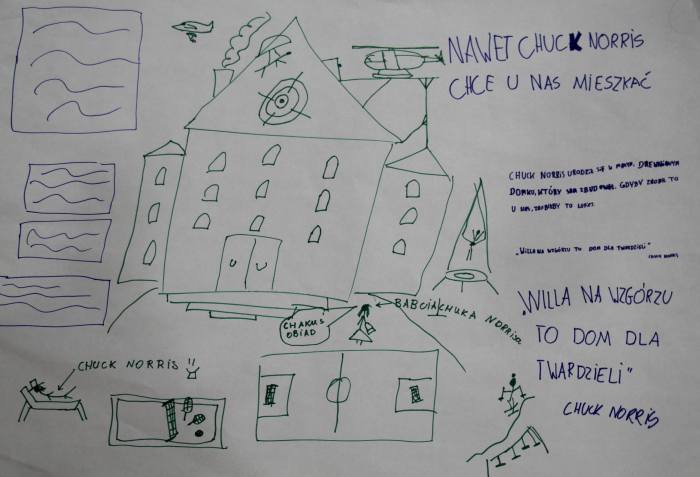 NAWET CHUCK NORRIS
CHCE U NAS MIESZKAĆ
CHUCK NORRIS URODZIŁ SIĘ W DREWNIANYM
DOMKU, KTÓRY SAM ZBUDOWAŁ. GDYBY ZROBIŁ TO
U NAS, ZROBIŁBY TO
„WILLA NA WZGÓRZU TO DOM DLA TWARDZIELI"
CHUCK NORRIS
„WILLA NA WZGÓRZU
TO DOM DLA
TWARDZIELI"
CHUCK NORRIS
BABCIA CHUKA NORRISA
CHAKUŚ
OBIAD
CHUCK NORRIS